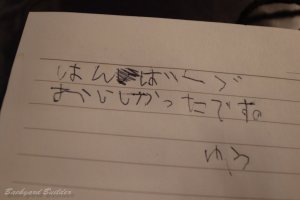 はんばーぐ
おいしかったです。
ゆう
Backyard Builder